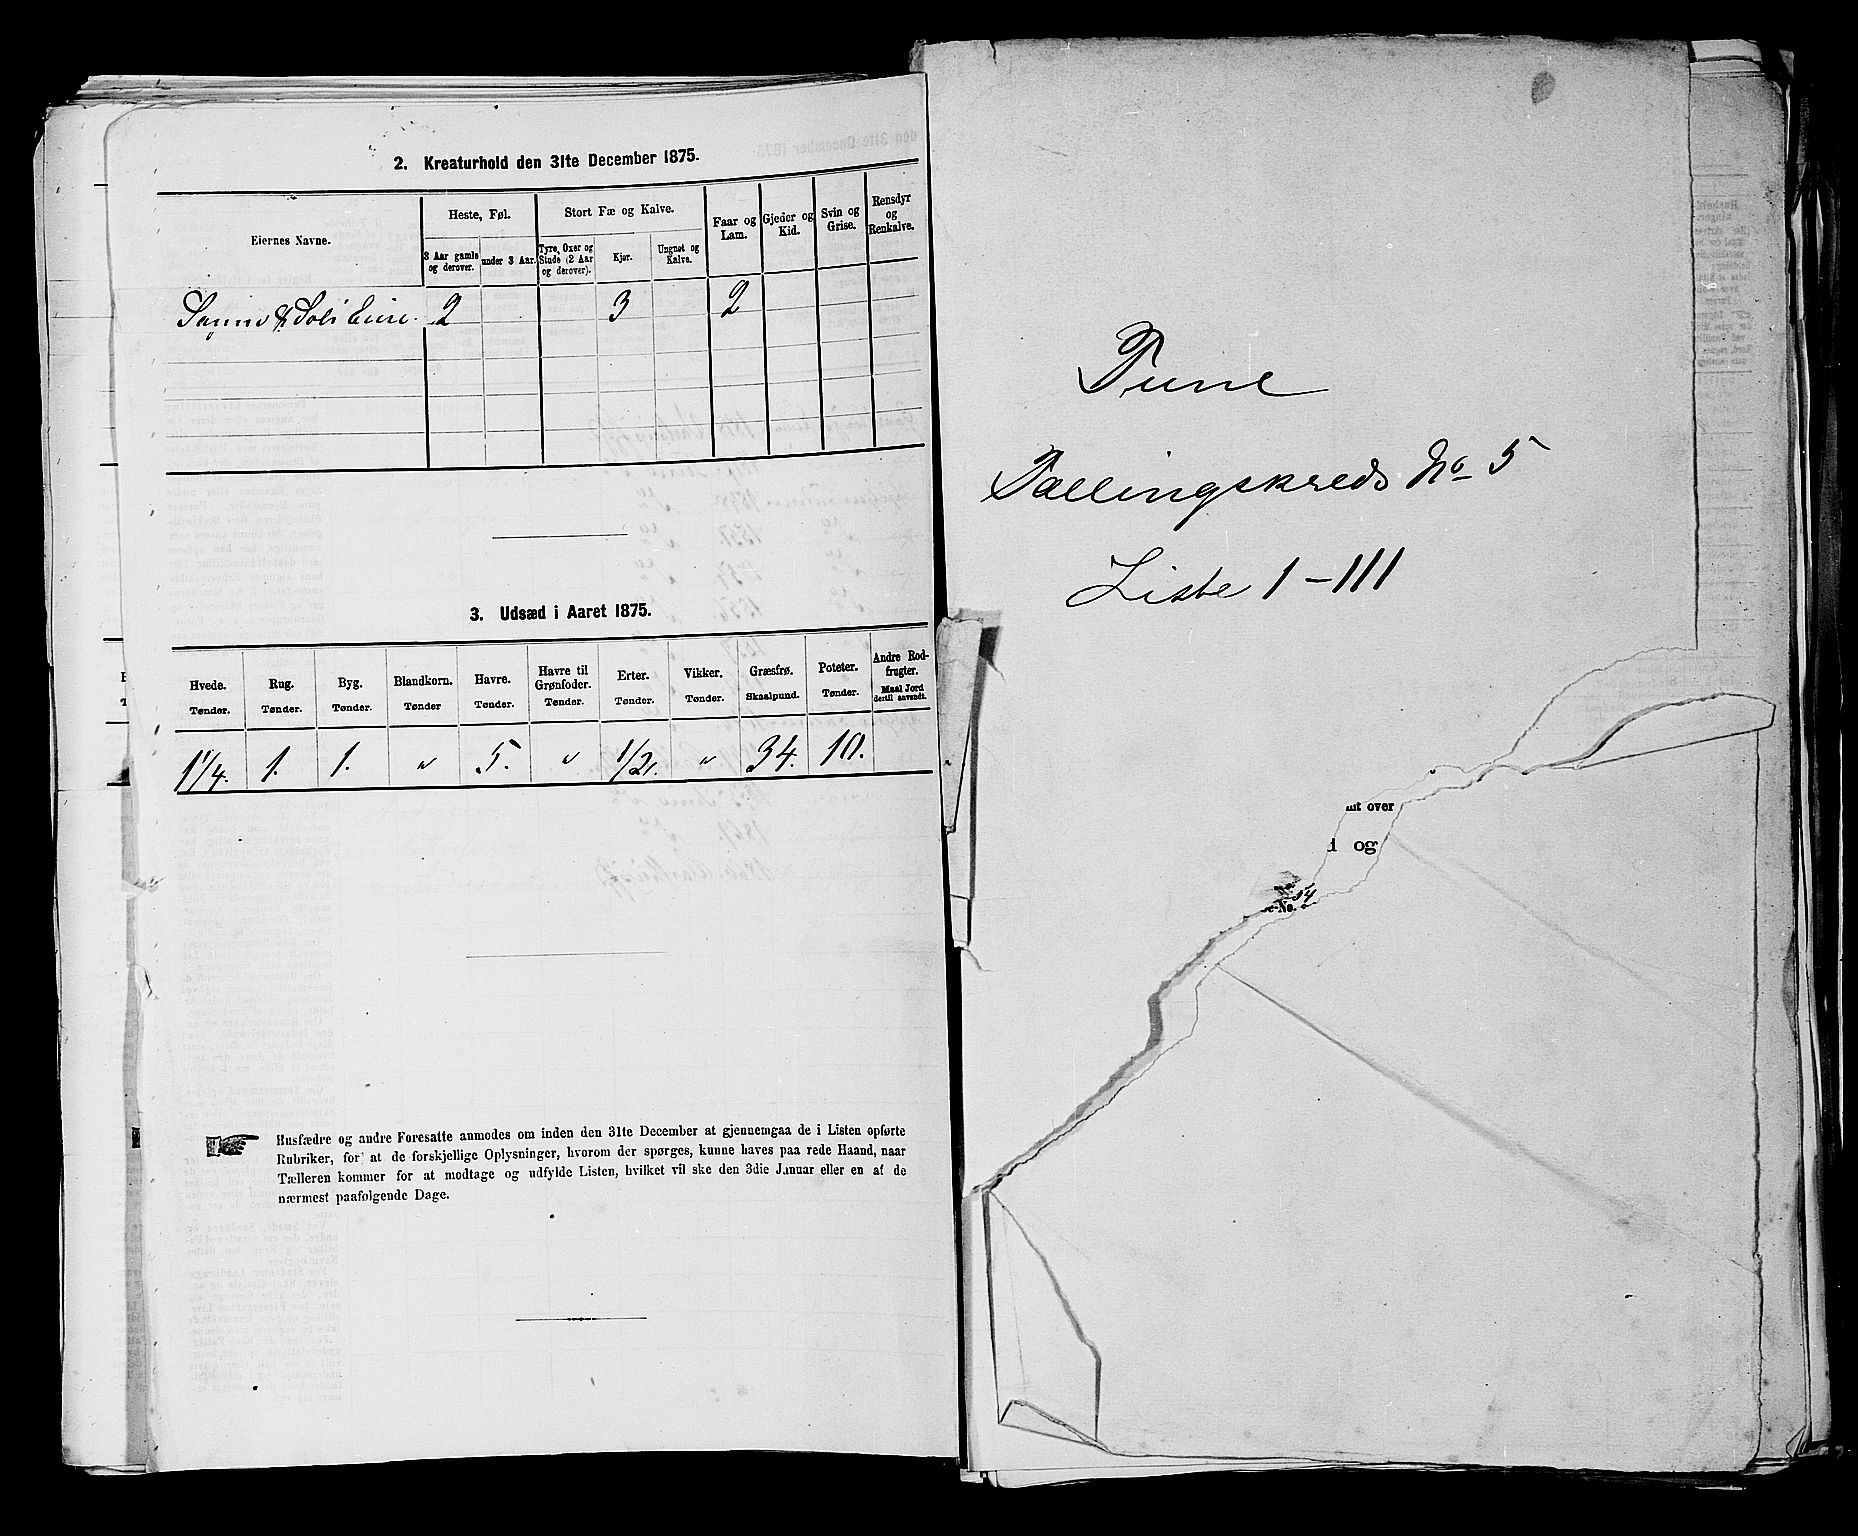 2. Kreaturhold den 31te December 1875.
Eiernes Navne.
Heste, Føl.
Stort Fæ og Kalve.
Faar og Lam.
Gjeder og Kid.
Svin og Grise.
Rensdyr og Renkalve.
3 Aar gamle og derover.
under 3 Aar.
Tyre, Oxer og Stude (2 Aar og derover).
Kjør.
Ungnøt og Kalve.
2 3 2
3. Udsæd i Aaret 1875.
Hvede. Rug. Byg. Blandkorn. Havre. Havre til Grønfoder. Erter. Vikker. Græsfrø. Poteter. Andre Rodfrugter.
Tønder. Tønder. Tønder. Tønder Tønder. Tønder. Tønder. Tønder. Skaalpund. Tønder. Maal Jord dertil anvendt.
1 1/4. 1. 1. " 5. " 1/2. " 34. 10.
Husfædre og andre Foresatte anmodes om inden den 31te December at gjennemgaa de i Listen opførte
Rubriker, for at de forskjellige Oplysninger, hvorom der spørges, kunne haves paa rede Haand, naar
Tælleren kommer for at modtage og udfylde Listen, hvilket vil ske den 3die Januar eller en af de
nærmest paafølgende Dage.
Tune
Tællingskreds No 5
Liste 1-111
mt over
d og
e-No. 54